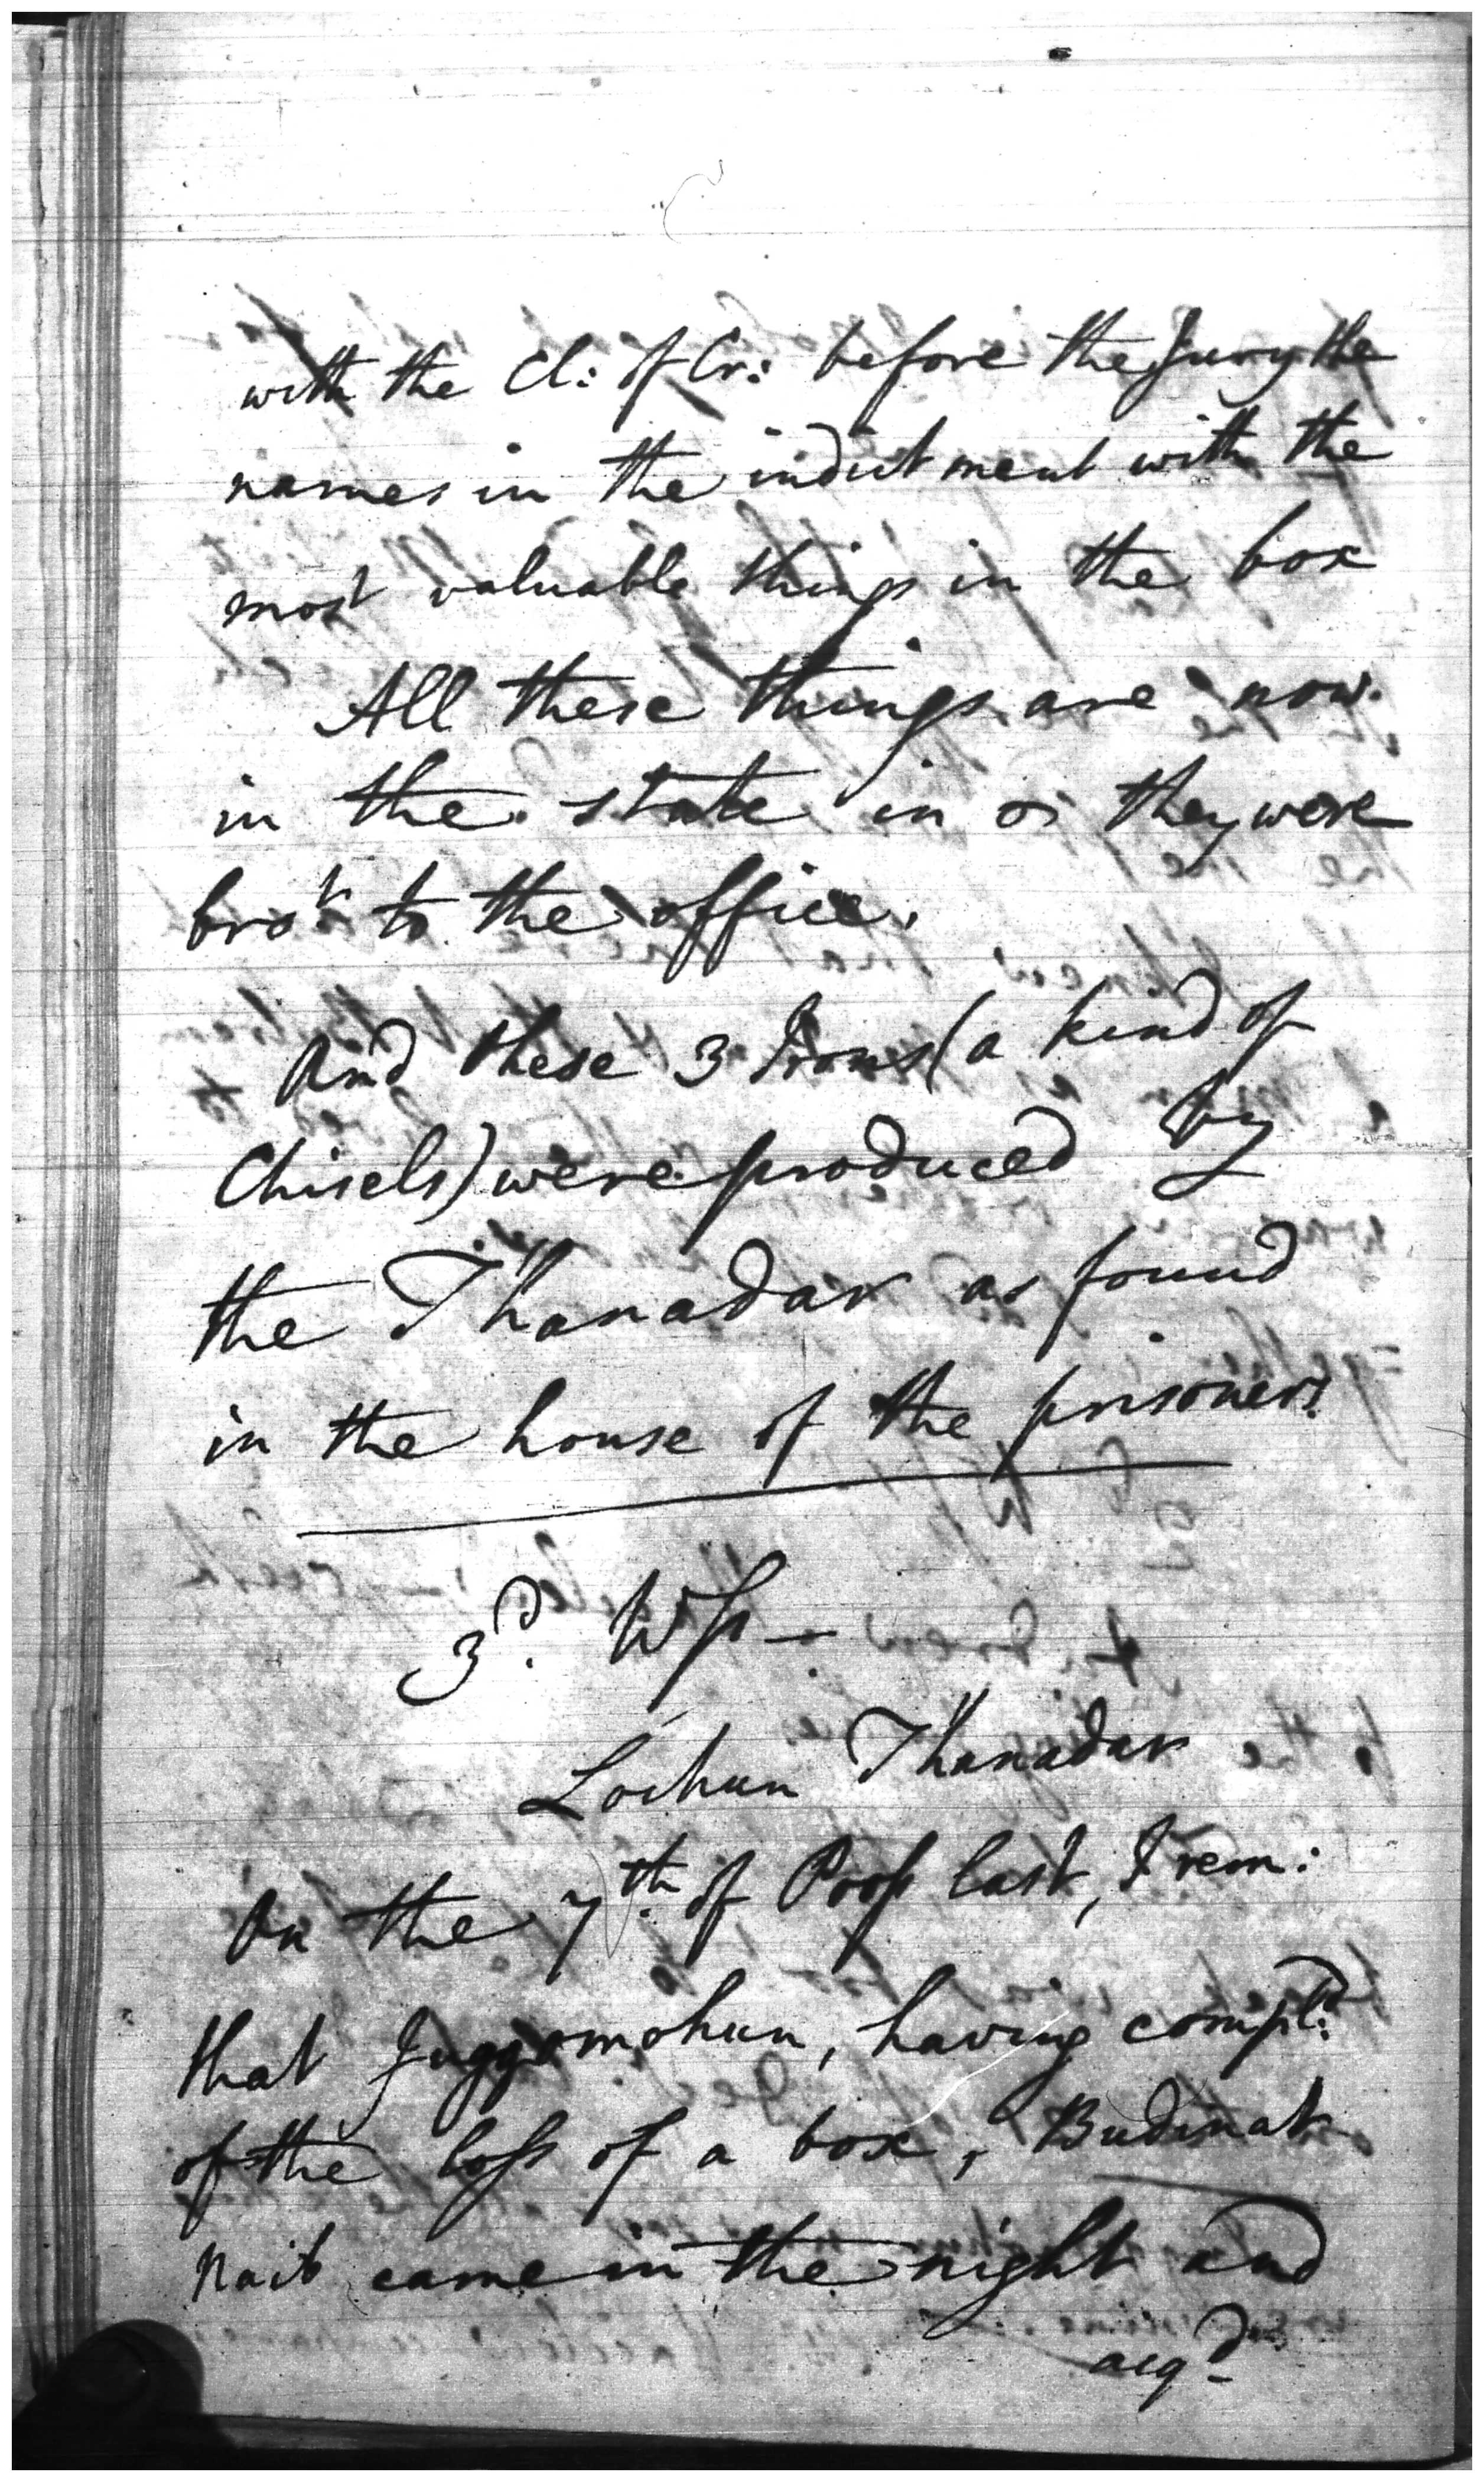 with the Cl: of Cr: before the Jury the
names in the indictment with the
most valuable things in the box
All these things are now
in the state in they were
bro.t to the office.
And these 3 Irons (a kind of
Chisels) were produced by
the Thanadar as found
in the house of the prisoners.
3d. Wss —
Lochun Thanadar
On the 7th. of Poos last, I rem:
that Juggomohun, having compl.d
of the loss of a box, Budinat
Nait came in the night and
acqd